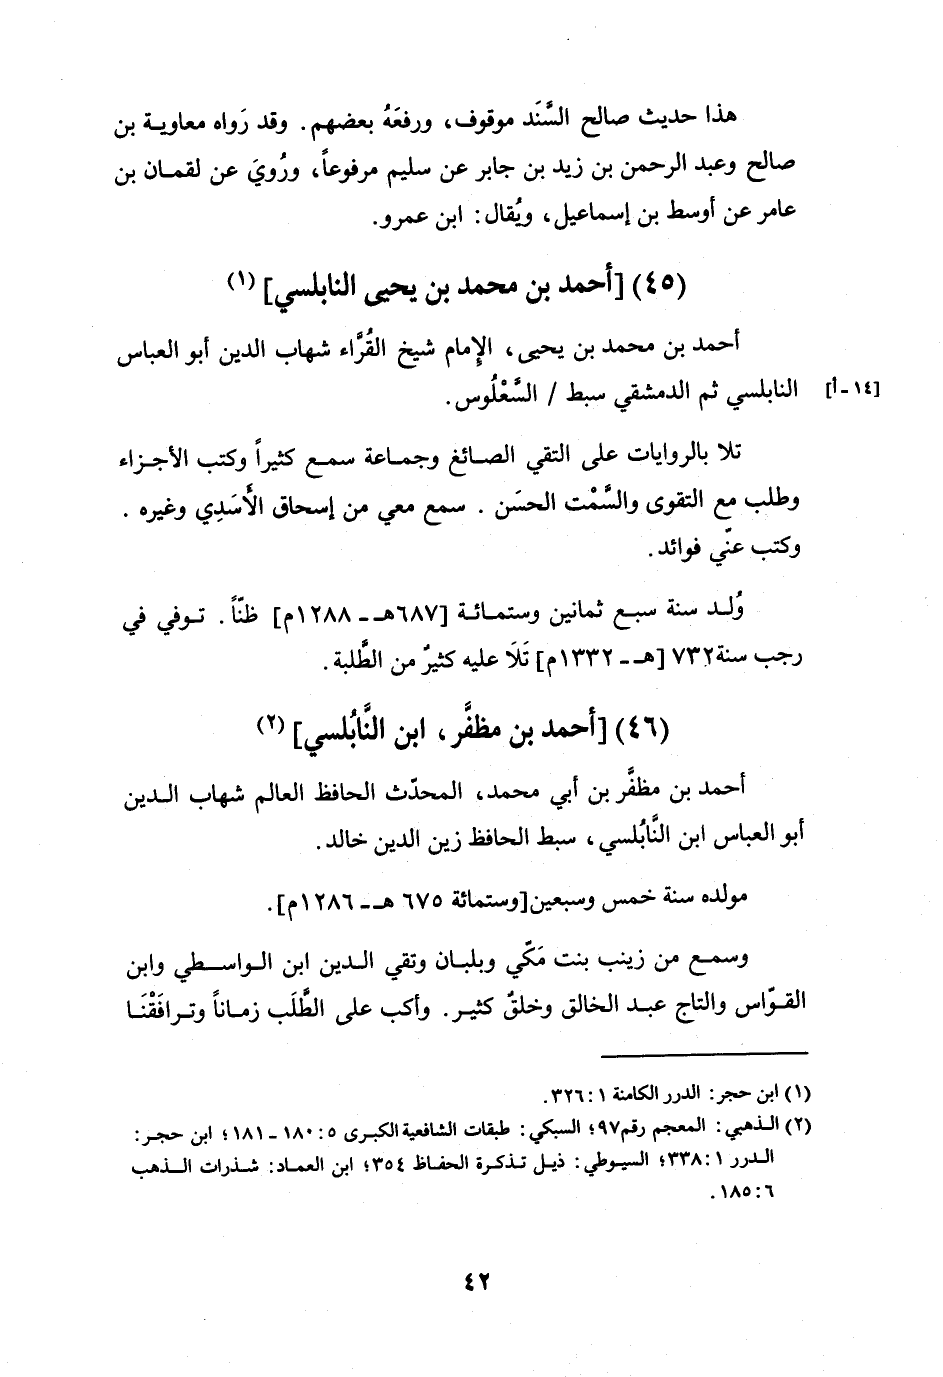 هذا حديث صالح السَّنَد موقوف، ورفعَهُ بعضهم. وقد رَواه معاويـة بن
صالح وعبد الرحمن بن زيد بن جابر عن سليم مرفوعاً، ورُويَ عن لقمـان بن
عامر عن أوسط بن إسماعيل، ويُقال: ابن عمرو.
(٤٥) [أحمد بن محمد بن يحيى النابلسي] (١)
أحمد بن محمد بن يحيى، الإمام شيخ القُرَّاء شهاب الدين أبو العباس
[١٤-أ] النابلسي ثم الدمشقي سبط / السَّعْلُوس.
تلا بالروايات على التقي الصـائغ وجمـاعة سمـع كثيراً وكتب الأجـزاء
وطلب مع التقوى والسَّمْت الحسَن. سمع معي من إسحاق الأَسَدِي وغيره.
وكتب عنّي فوائد.
وُلـد سنة سبـع ثمانين وستمـائـة [٦٨٧هـ - ١٢٨٨م] ظنّاً. تـوفي في
رجب سنة ٧٣٢ [هـ - ١٣٣٢م] تَلَا عليه كثيرٌ من الطَّلبة.
(٤٦) [أحمد بن مظفَّر، ابن النَّابُلسي] (٢)
أحمد بن مظفَّر بن أبي محمد، المحدّث الحافظ العالم شهاب الـدين
أبو العباس ابن النَّابُلسي، سبط الحافظ زين الدين خالد.
مولده سنة خمس وسبعين[وستمائة ٦٧٥ هـ - ١٢٨٦م].
وسمـع من زينب بنت مَكّي وبلبـان وتقي الـدين ابن الـواسـطي وابن
القـوّاس والتاج عبـد الخالق وخلقٌ كثيـر. وأكب على الطَّلَب زمـاناً وتـرافَقْنَـا
(١) ابن حجر: الدرر الكامنة ١: ٣٢٦.
(٢) الـذهبي: المعجم رقم ٩٧؛ السبكي: طبقات الشافعية الكبرى ٥: ١٨٠ - ١٨١؛ ابن حجـر:
الـدرر ١: ٣٣٨؛ السيـوطي: ذيـل تـذكـرة الحفـاظ ٣٥٤؛ ابن العمـاد: شـذرات الـذهب
٦: ١٨٥.
٤٢